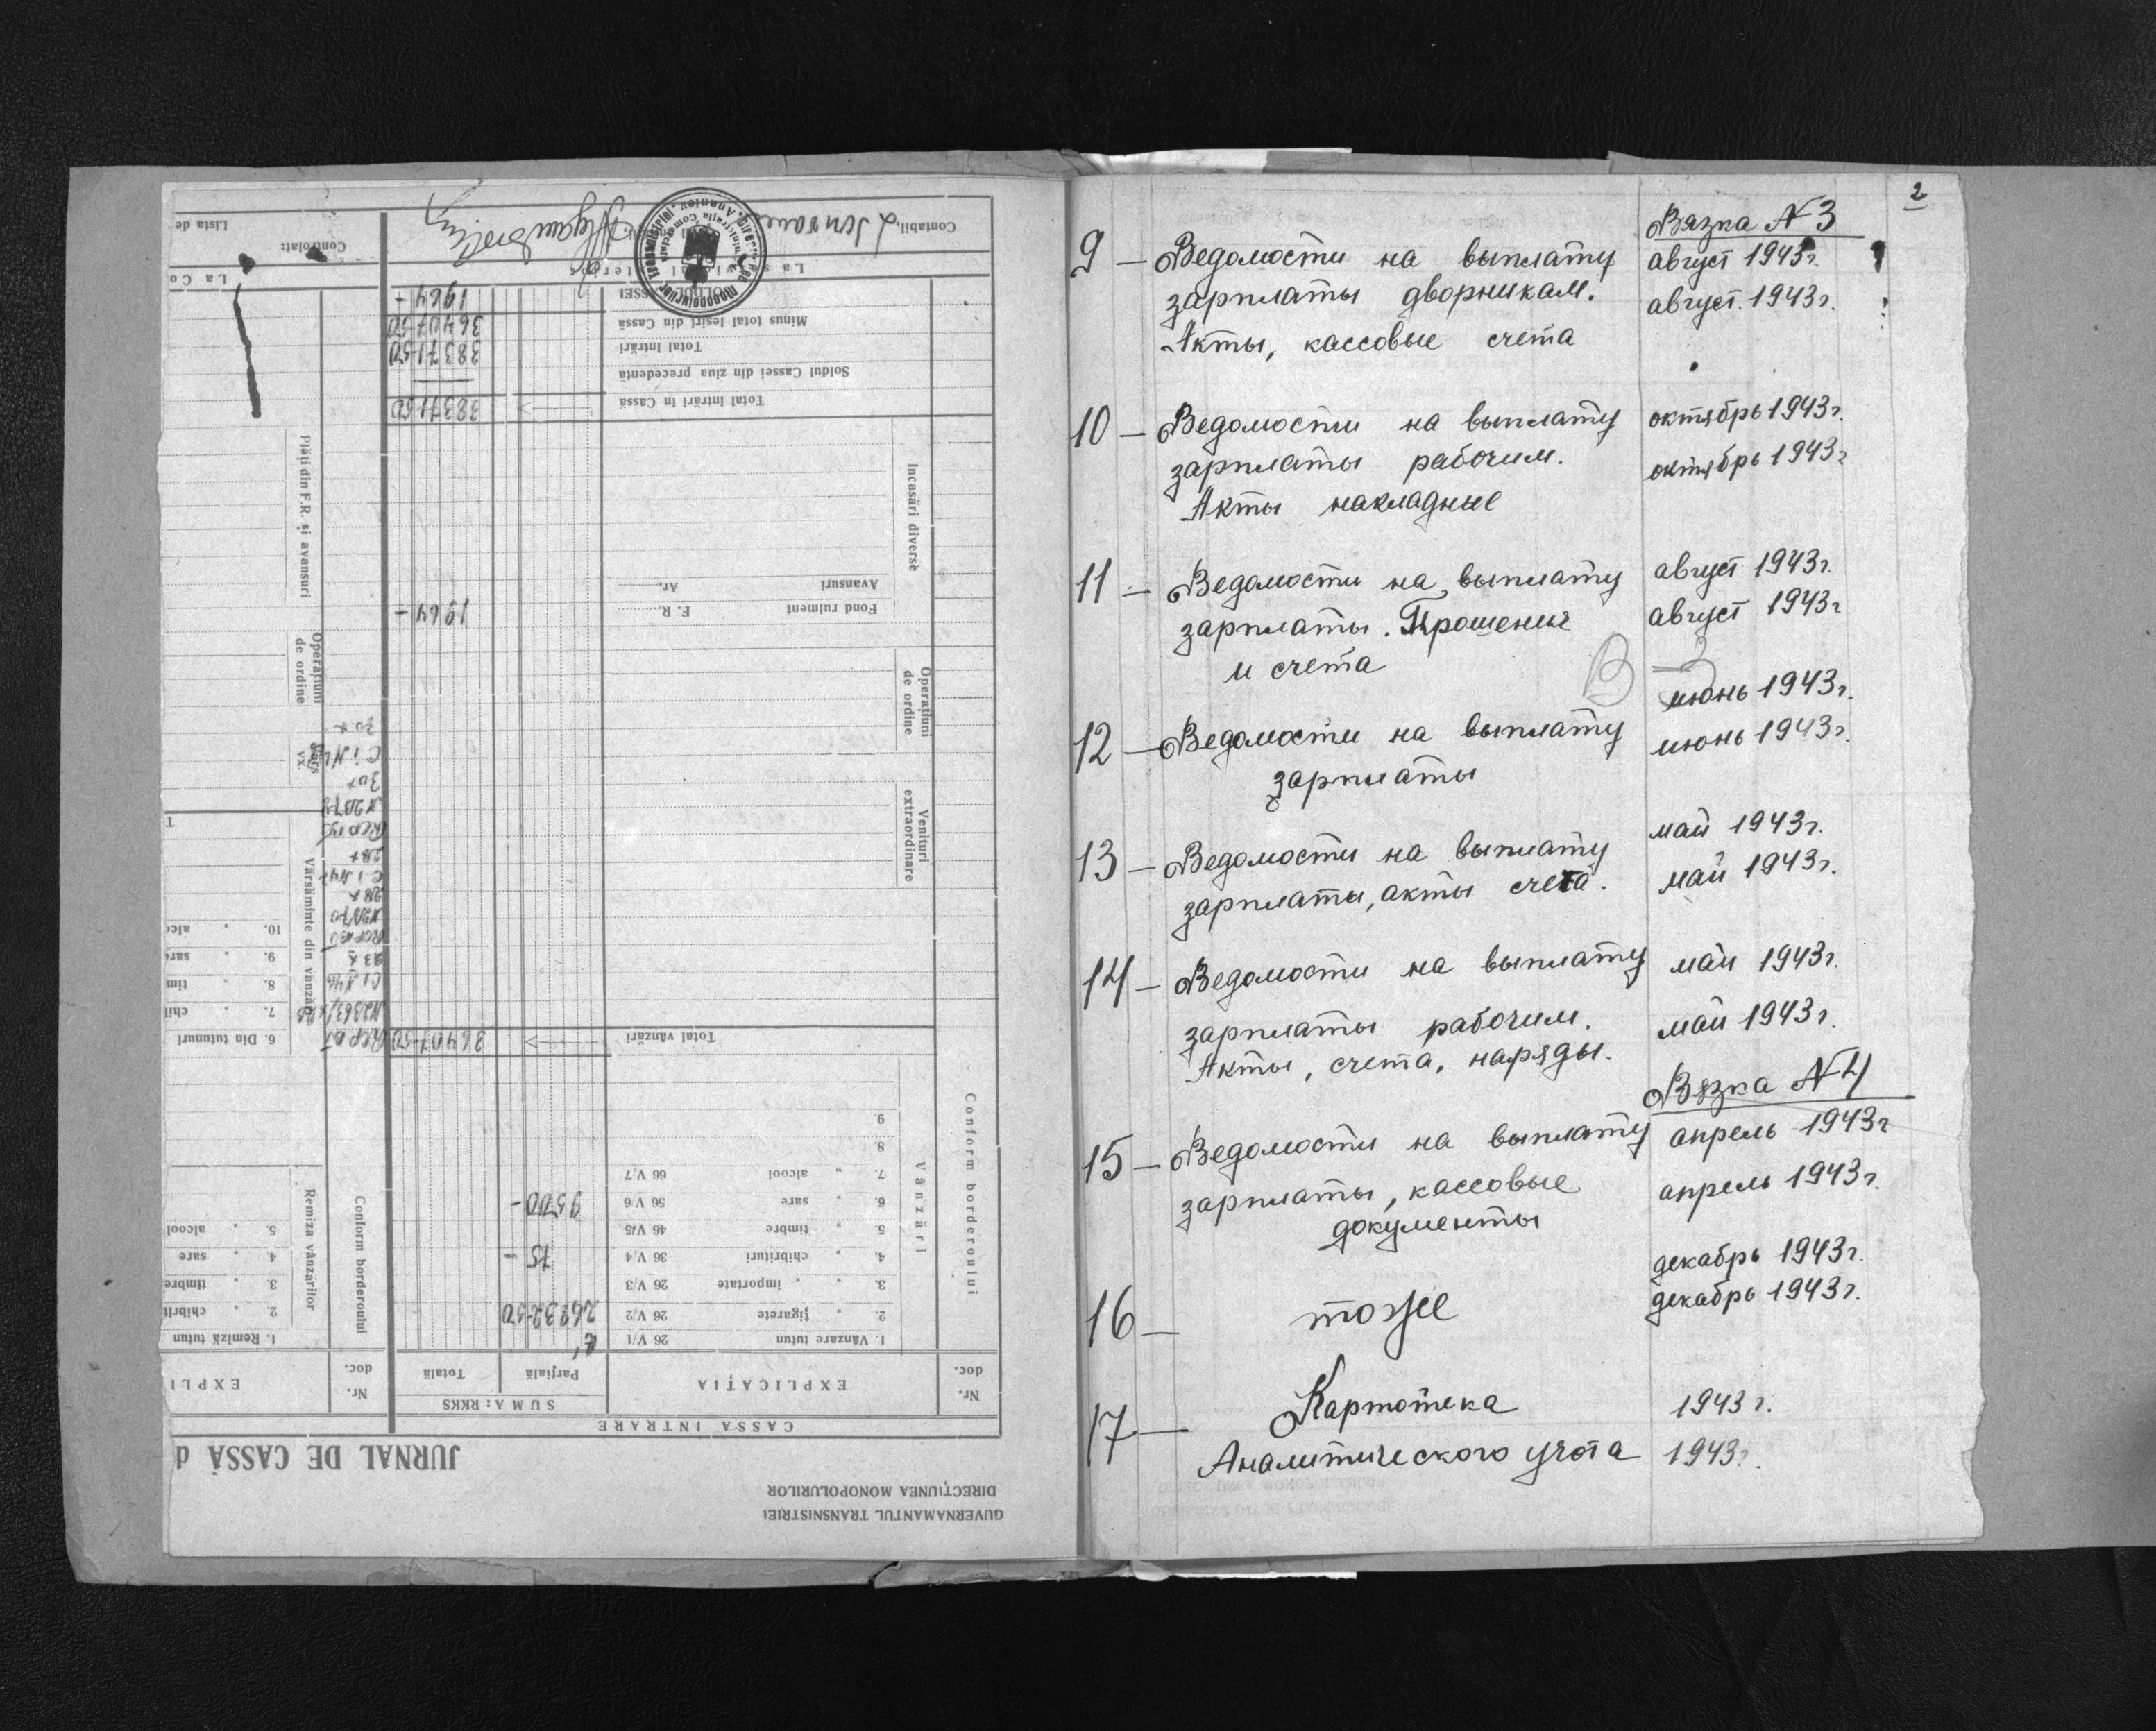 GUVERNAMANTUL TRANSNISTRIEI
DIRECȚIUNEA MONOPOLURILOR
JURNAL DE CASSĂ d
CASSA INTRARE
Nr. doc.
EXPLICAȚIA
SUMA: RKKS
Parțială
Totală
Nr. doc.
EXPLI
Conform borderoului
Vânzări
1. Vânzare tutun 26 V/1
2. " țigarete 26 V/2 26832-50
3. " " importate 26 V/3
4. " chibrituri 36 V/4 75 -
5. " timbre 46 V/5
6. " sare 56 V/6 9500-
7. " alcool 66 V/7
8.
9.
Total vânzări 36407-50
Venituri extraordinare
Operațiuni de ordine
Fond rulment F. R. 1964 -
Avansuri Ar.
Incasări diverse
Total intrări în Cassă 38371-50
Soldul Cassei din ziua precedenta
Total Intrări 38371-50
Minus total Ieșiri din Cassă 36407-50
1964 -
Contabil,
Conform borderoului
Remiza vânzărilor
1. Remiză tutun
2. " chibrit
3. " timbre
4. " sare
5. " alcool
Vărsăminte din vânzări
6. Din tutunuri
7. " chi
8. " tim
9. " sare
10. " alco
Operațiuni de ordine
Plăți din F.R. și avansuri
La Co
Controlat:
Lista de
2
Вязка N 3
9 — Ведомости на выплату август 1943г.
зарплаты дворникам. август. 1943г.
Акты, кассовые счета
10 — Ведомости на выплату октябрь 1943г.
зарплаты рабочим. октябрь 1943г
Акты накладные
11 — Ведомости на выплату август 1943г.
зарплаты. Прошения август 1943г
и счета
июнь 1943г.
12 — Ведомости на выплату июнь 1943г.
зарплаты
май 1943г.
13 — Ведомости на выплату май 1943г.
зарплаты, акты счета.
14 — Ведомости на выплату май 1943г.
зарплаты рабочим. май 1943г.
Акты, счета, наряды.
Вязка N 4
15 — Ведомости на выплату апрель 1943г
зарплаты, кассовые апрель 1943г.
документы
декабрь 1943г.
16 — тоже декабрь 1943г.
17 — Картотека 1943г.
Аналитического учёта 1943г.